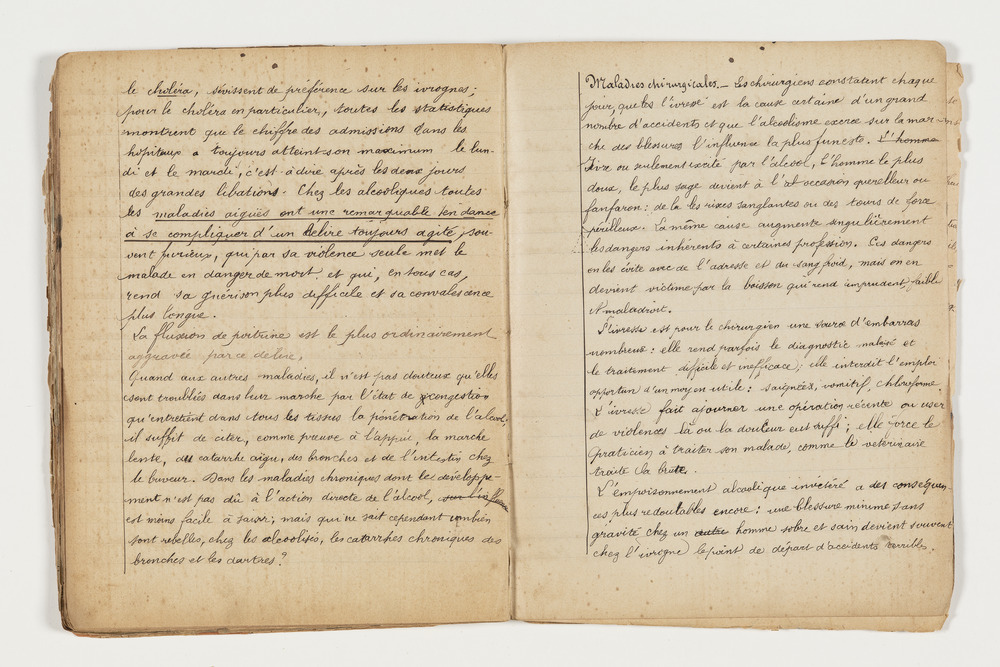 le choléra, sévissent de préférence sur les ivrognes;
pour le choléra en particulier, toutes les statistiques
montrent que le chiffre des admissions dans les
hôpitaux a toujours atteint son maximum le lun-
di et le mardi, c'est-à-dire après les deux jours
des grandes libations. Chez les alcooliques toutes
les maladies aiguës ont une remarquable tendance
à se compliquer d'un délire toujours agité, sou-
vent furieux, qui par sa violence seule met le
malade en danger de mort et qui, en tous cas,
rend sa guérison plus difficile et sa convalescence
plus longue.
La fluxion de poitrine est le plus ordinairement
aggravée par ce délire.
Quand aux autres maladies, il n'est pas douteux qu'elles
sont troublés dans leur marche par l'état de congestion
qu'entretient dans tous les tissus la pénétration de l'alcool;
il suffit de citer, comme preuve à l'appui, la marche
lente, du catarrhe aigu, des bronches et de l'intestin chez
le buveur. Dans les maladies chroniques dont le développe-
ment n'est pas dû à l'action directe de l'alcool,
est moins facile à saisir; mais qui ne sait cependant combien
sont rebelles, chez les alcoolisés, les catarrhes chroniques des
bronches et les dartres?
Maladies chirurgicales. — Les chirurgiens constatent chaque
jour que les l'ivresse est la cause certaine d'un grand
nombre d'accidents et que l'alcoolisme exerce sur la mar-
che des blessures l'influence la plus funeste. L'homme
Ivre ou seulement excité par l'alcool, l'homme le plus
doux, le plus sage devient à l'occasion querelleur ou
fanfaron: de là les rixes sanglantes ou des tours de force
périlleux. La même cause augmente singulièrement
les dangers inhérents à certaines profession. Ces dangers
on les évite avec de l'adresse et du sang froid, mais on en
devient victime par la boisson qui rend imprudent, faible
et maladroit.
L'ivresse est pour le chirurgien une source d'embarras
nombreux: elle rend parfois le diagnostic malaisé et
le traitement difficile et inefficace; elle interdit l'emploi
opportun d'un moyen utile: saignées, vomitif, chloroforme.
L'ivresse fait ajourner une opération récente ou user
de violences là ou la douceur eut suffi; elle force le
praticien à traiter son malade, comme le vétérinaire
traite la brute.
L'empoisonnement alcoolique invétéré a des conséquen-
ces plus redoutables encore: une blessure minime sans
gravité chez un autre homme sobre et sain devient souvent
chez l'ivrogne le point de départ d'accidents terribles.